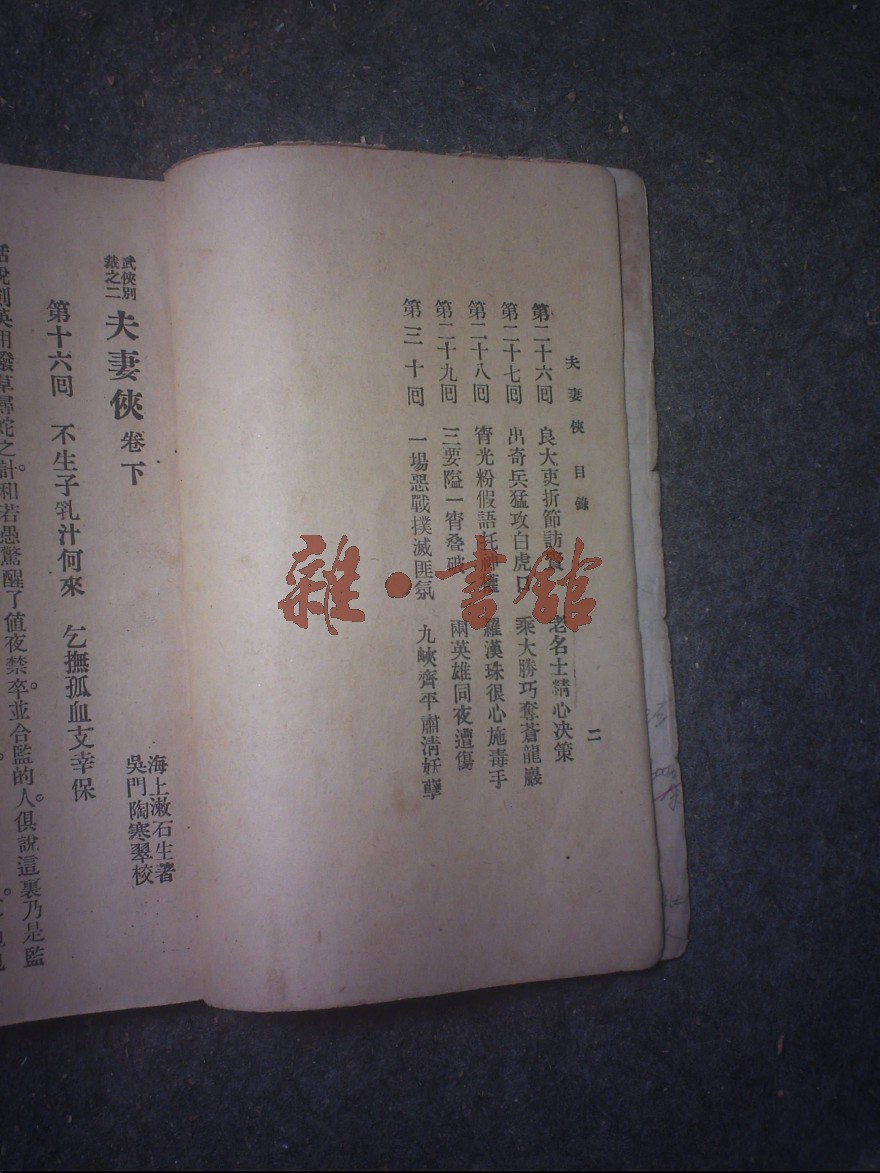 夫妻俠目錄
二
第二十六回 良大吏折節訪賢 老名士精心決策
第二十七回 出奇兵猛攻白虎口 乘大勝巧奪蒼龍巖
第二十八回 宵光粉假語托神權 羅漢珠很心施毒手
第二十九回 三要隘一宵叠破 兩英雄同夜遭傷
第三十回 一場惡戰撲滅匪氛 九峽齊平肅清妖孽
雜·書館
武俠別
裁之二
夫妻俠 卷下
海上漱石生著
吳門陶寒翠校
第十六回 不生子乳汁何來 乞撫孤血支幸保
話說劉英用撥草尋蛇之計。和若愚驚醒了值夜禁卒。並合監的人。俱說這裏乃是監